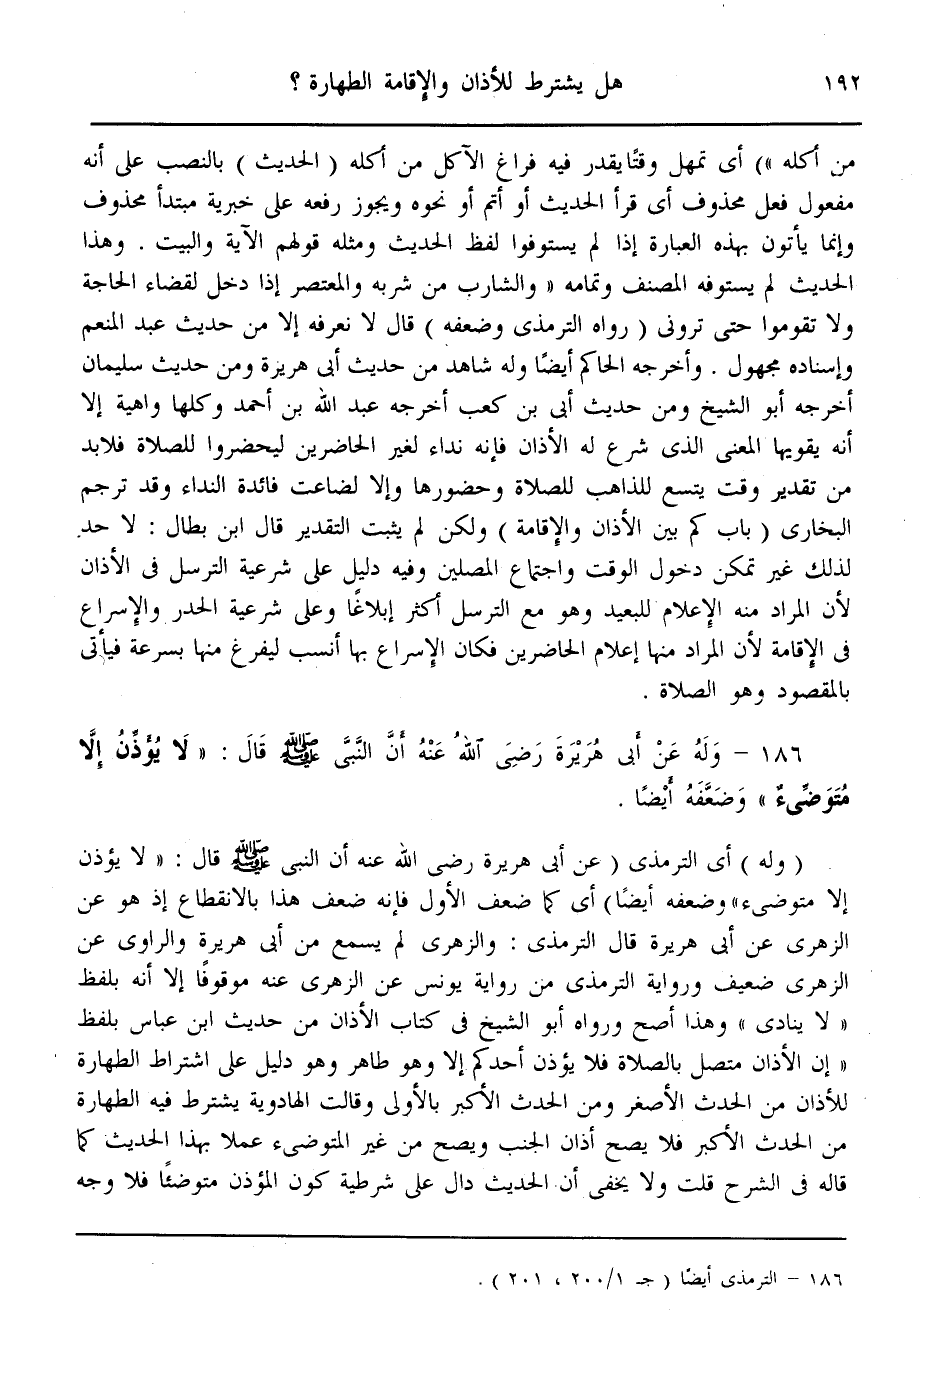 ١٩٢ هل يشترط للأذان والإقامة الطهارة ؟
من أكله ») أى تمهل وقتًا يقدر فيه فراغ الآكل من أكله ( الحديث ) بالنصب على أنه
مفعول فعل محذوف أى قرأ الحديث أو أتم أو نحوه ويجوز رفعه على خبرية مبتدأ محذوف
وإنما يأتون بهذه العبارة إذا لم يستوفوا لفظ الحديث ومثله قولهم الآية والبيت . وهذا
الحديث لم يستوفه المصنف وتمامه « والشارب من شربه والمعتصر إذا دخل لقضاء الحاجة
ولا تقوموا حتى ترونى ( رواه الترمذى وضعفه ) قال لا نعرفه إلا من حديث عبد المنعم
وإسناده مجهول . وأخرجه الحاكم أيضًا وله شاهد من حديث أبى هريرة ومن حديث سليمان
أخرجه أبو الشيخ ومن حديث أبى بن كعب أخرجه عبد الله بن أحمد وكلها واهية إلا
أنه يقويها المعنى الذى شرع له الأذان فإنه نداء لغير الحاضرين ليحضروا للصلاة فلابد
من تقدير وقت يتسع للذاهب للصلاة وحضورها وإلا لضاعت فائدة النداء وقد ترجم
البخارى ( باب كم بين الأذان والإقامة ) ولكن لم يثبت التقدير قال ابن بطال : لا حد
لذلك غير تمكن دخول الوقت واجتماع المصلين وفيه دليل على شرعية الترسل فى الأذان
لأن المراد منه الإعلام للبعيد وهو مع الترسل أكثر إبلاغًا وعلى شرعية الحدر والإسراع
فى الإقامة لأن المراد منها إعلام الحاضرين فكان الإسراع بها أنسب ليفرغ منها بسرعة فيأتى
بالمقصود وهو الصلاة .
١٨٦ – وَلَهُ عَنْ أَبِى هُرَيْرَةَ رَضِىَ ٱللهُ عَنْهُ أَنَّ النَّبِىَّ ﷺ قَالَ : « لَا يُؤَذِّنُ إِلَّا
مُتَوَضِّىءٌ » وَضَعَّفَهُ أَيْضًا .
( وله ) أى الترمذى ( عن أبى هريرة رضى الله عنه أن النبى ﷺ قال : « لا يؤذن
إلا متوضىء» وضعفه أيضًا) أى كما ضعف الأول فإنه ضعف هذا بالانقطاع إذ هو عن
الزهرى عن أبى هريرة قال الترمذى : والزهرى لم يسمع من أبى هريرة والراوى عن
الزهرى ضعيف ورواية الترمذى من رواية يونس عن الزهرى عنه موقوفًا إلا أنه بلفظ
« لا ينادى » وهذا أصح ورواه أبو الشيخ فى كتاب الأذان من حديث ابن عباس بلفظ
« إن الأذان متصل بالصلاة فلا يؤذن أحدكم إلا وهو طاهر وهو دليل على اشتراط الطهارة
للأذان من الحدث الأصغر ومن الحدث الأكبر بالأولى وقالت الهادوية يشترط فيه الطهارة
من الحدث الأكبر فلا يصح أذان الجنب ويصح من غير المتوضىء عملا بهذا الحديث كما
قاله فى الشرح قلت ولا يخفى أن الحديث دال على شرطية كون المؤذن متوضئًا فلا وجه
١٨٦ – الترمذى أيضًا ( جـ ٢٠٠/١ ، ٢٠١ ) .